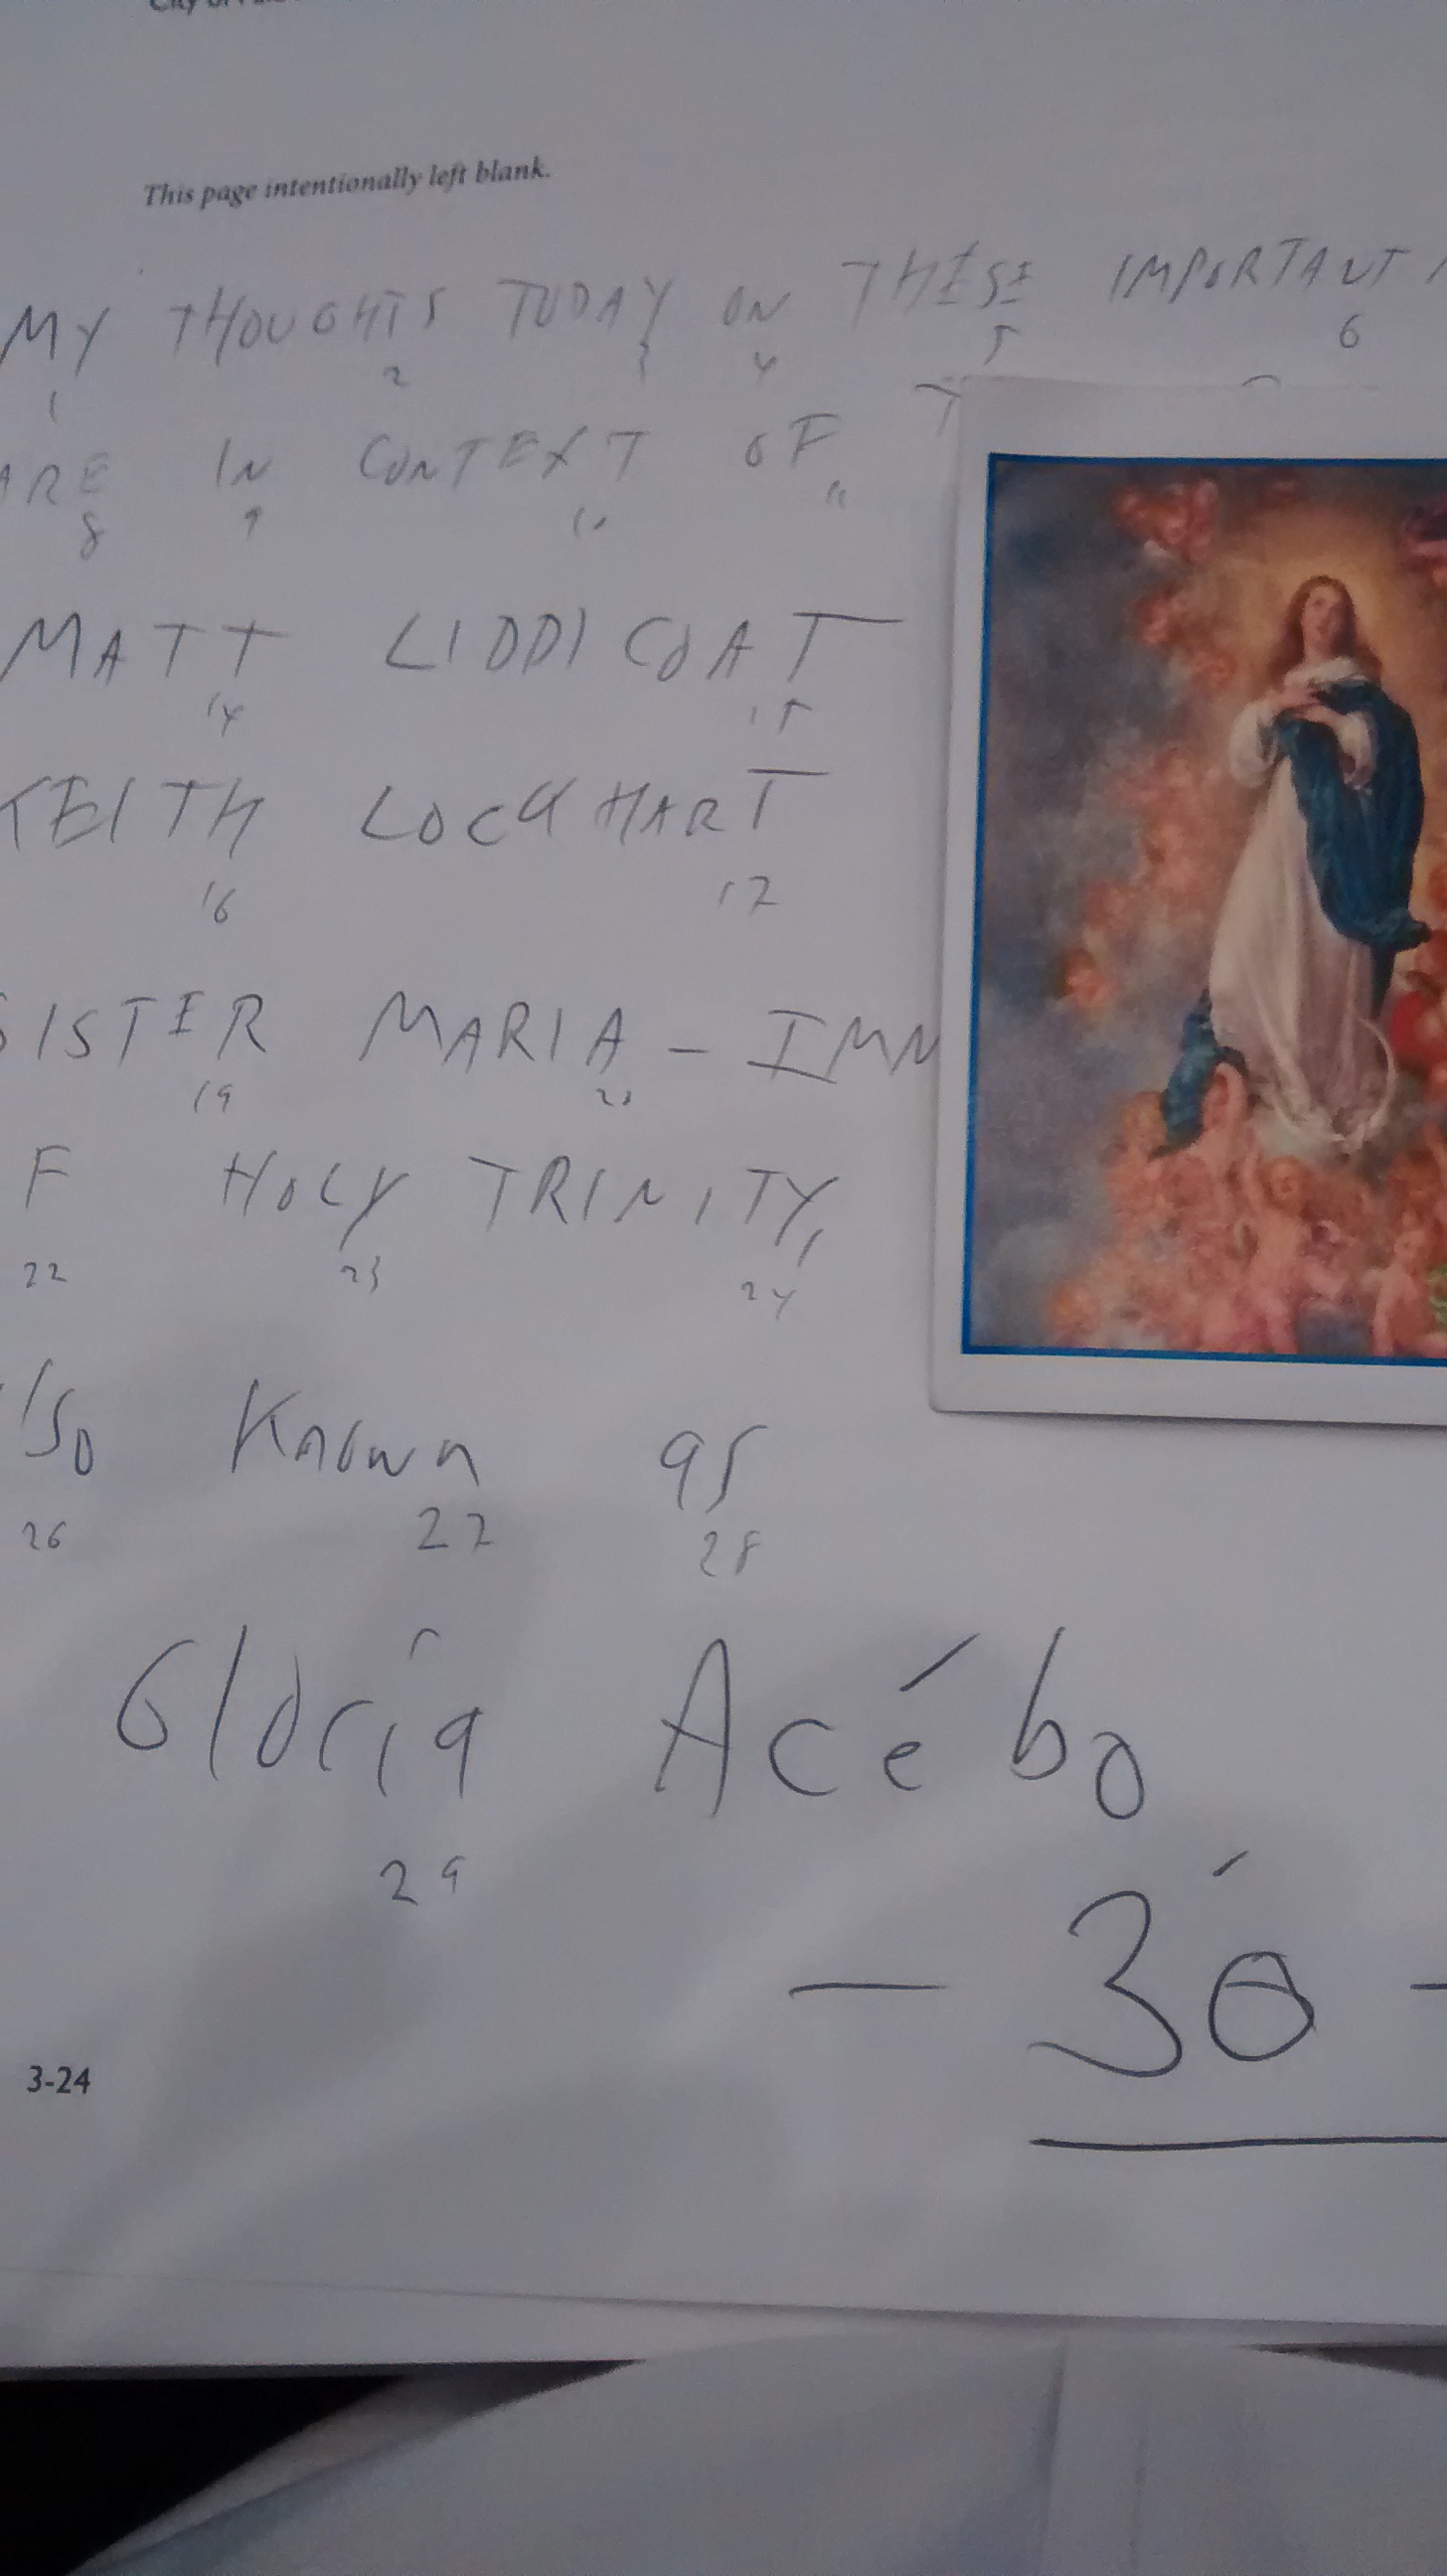 This page intentionally left blank.
MY THOUGHTS TODAY ON THESE IMPORTANT
1 2 3 4 5 6
ARE IN CONTEXT OF
8 9 10 11
MATT LIDDICOAT
14 15
KEITH LOCKHART
16 17
SISTER MARIA - IMM
19 20
F HOLY TRINITY,
22 23 24
lso Known as
26 27 28
Gloria Acébo
29
- 30 -
3-24